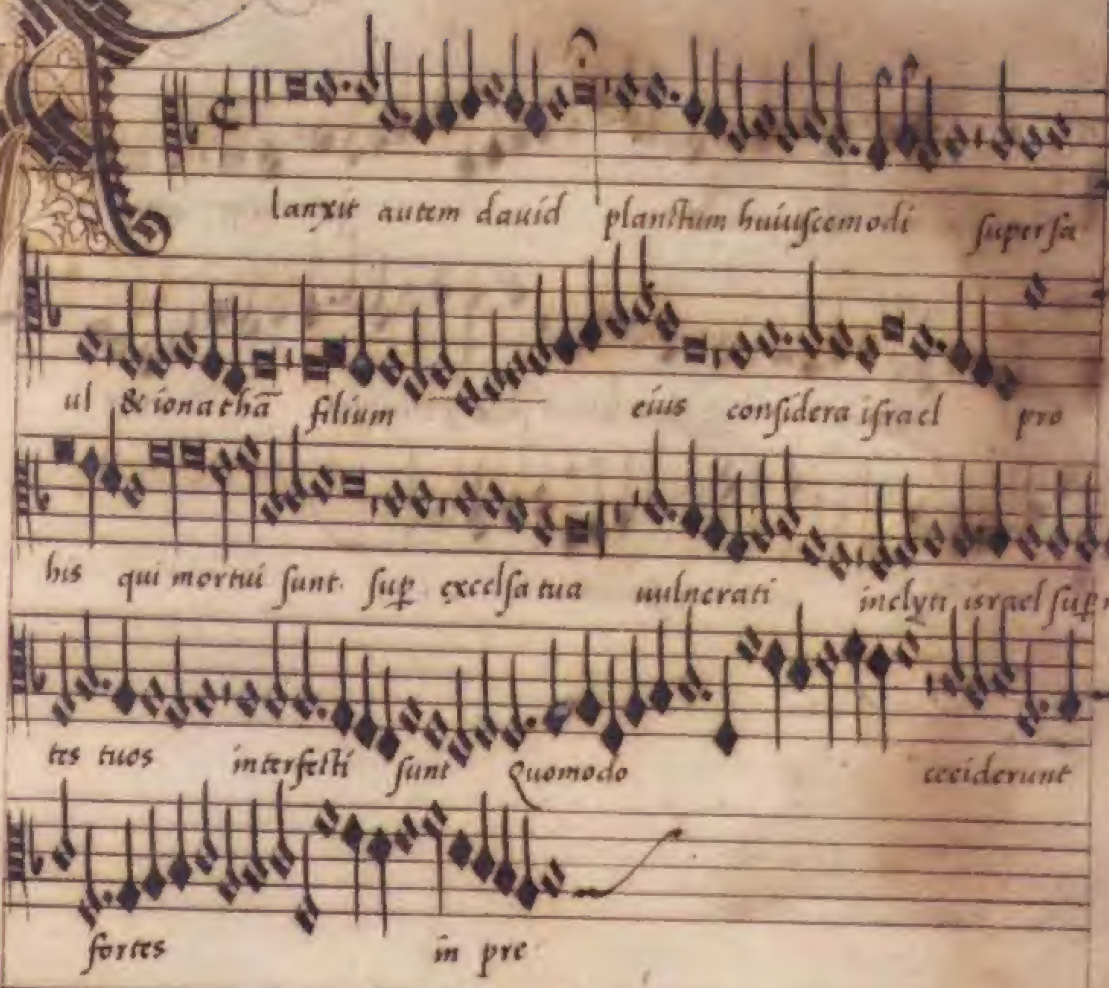 Planxit autem dauid planctum huiuscemodi super sa
ul & ionathā filium eius considera israel pro
his qui mortui sunt sup̱ excelsa tua uulnerati inclyti israel sup̱
tes tuos interfecti sunt Quomodo ceciderunt
fortes in pre